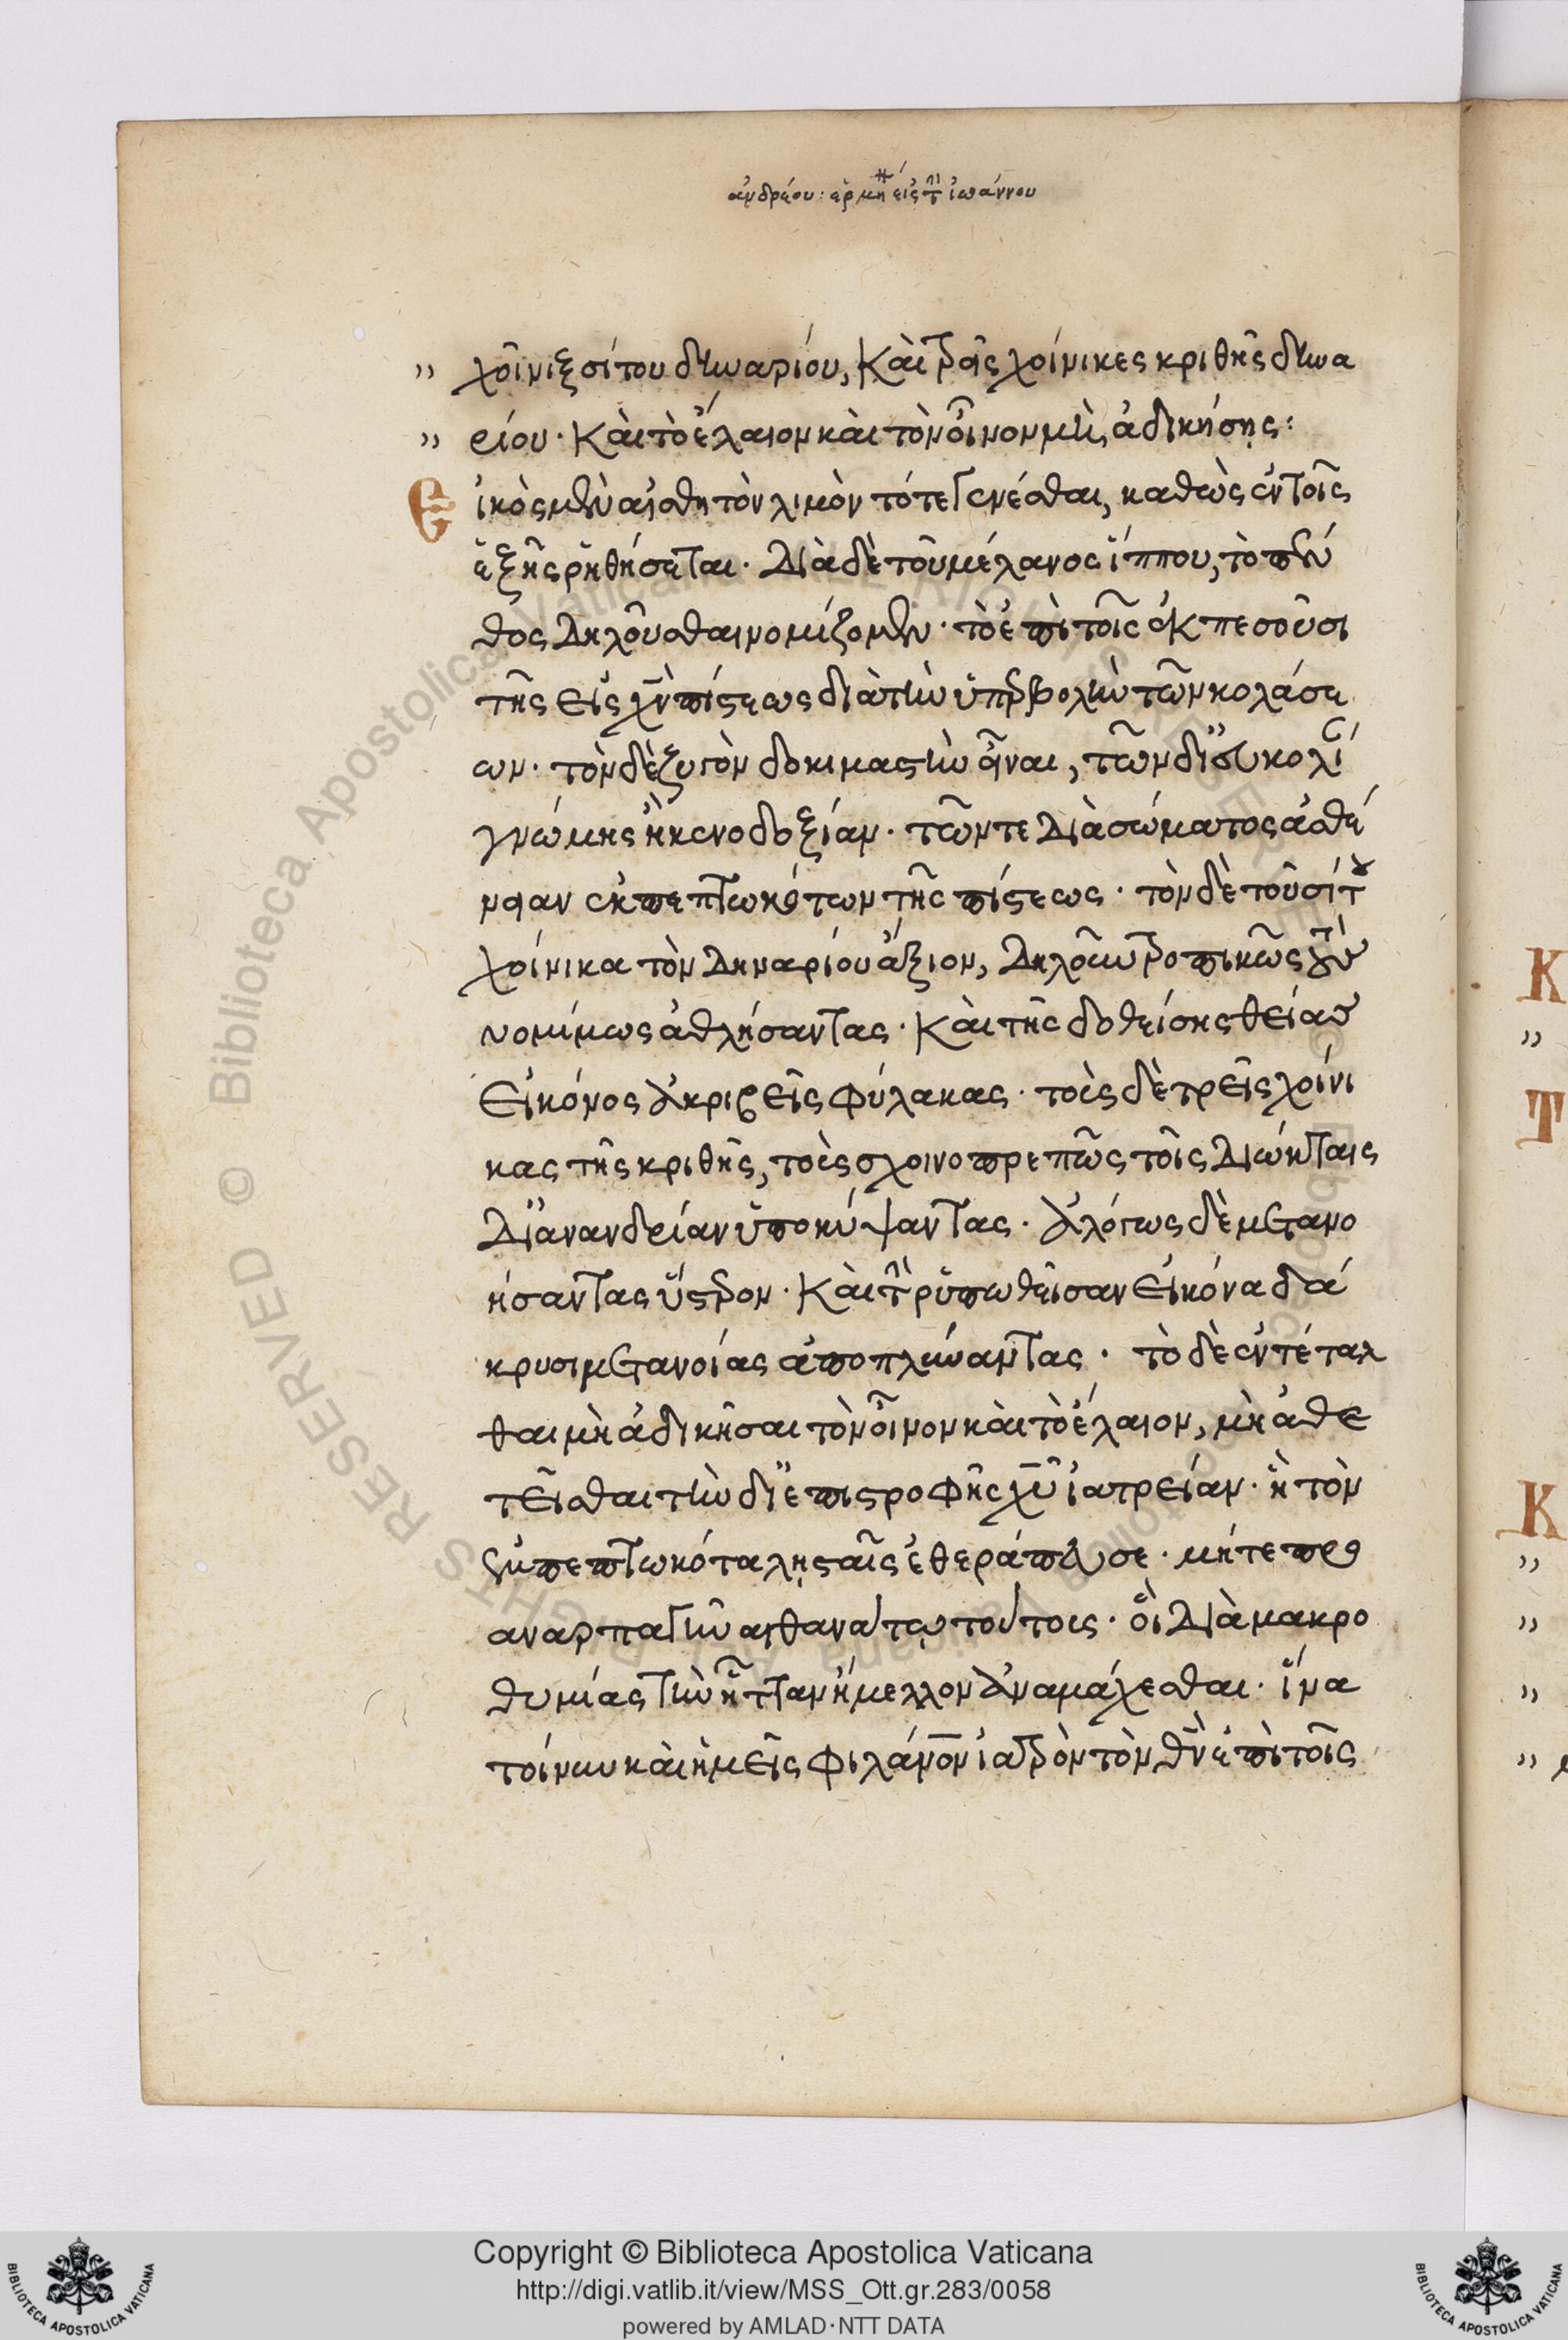 ἀνδρέου: ἑρμη εἰς τ ἰωάννου
" χοῖνιξ σίτου δηναρίου, Καὶ τρεῖς χοίνικες κριθῆς δηνα
" ρίου· Καὶ τὸ ἔλαιον καὶ τὸν οἶνον μὴ, ἀδικήσῃς:
Εἰκὸς μὲν αἰσθητὸν λιμὸν τότε γενέσθαι, καθὼς ἐν τοῖς
ἑξῆς ῥηθήσεται· Διὰ δὲ τοῦ μέλανος ἵππου, τὸ πέν
θος Δηλοῦσθαι νομίζομεν· τὸ ἐπὶ τοῖς ἐκπεσοῦσι
τῆς εἰς χν πίστεως διὰ τὴν ὑπερβολὴν τῶν κολάσε
ων· τὸν δὲ ζυγὸν δοκιμαστὴν εἶναι, τῶν δι' εὐκολί
γνώμης ἢ κενοδοξίαν· τῶν τε Διὰ σώματος ἀσθέ
νειαν ἐκπεπτωκότων τῆς πίστεως· τὸν δὲ τοῦ σίτου
χοίνικα τὸν Δηναρίου ἄξιον, Δηλοῦν τροπικῶς τοὺς
νομίμως ἀθλήσαντας· Καὶ τῆς δοθείσης θείας
Εἰκόνος ἀκριβεῖς φύλακας· τοὺς δὲ τρεῖς χοίνι
κας τῆς κριθῆς, τοὺς σχοινοπρεπῶς τοῖς Διώκταις
Δι' ἀνανδρίαν ὑποκύψαντας· ἀλόγως δὲ μετανο
ήσαντας ὕστερον· Καὶ τὴν ῥυπωθεῖσαν Εἰκόνα δά
κρυσι μετανοίας ἀποπλύναντας· τὸ δὲ ἐντέταλ
θαι μὴ ἀδικῆσαι τὸν οἶνον καὶ τὸ ἔλαιον, μὴ ἀθε
τεῖσθαι τὴν δι' ἐπιστροφῆς χυ ἰατρείαν· ἢ τὸν
ἐμπεπτωκότα λῃσταῖς ἐθεράπευσε· μήτε προ
αναρπαγῆναι θανάτῳ τούτοις· οἳ Διὰ μακρο
θυμίας τὴν ἧτταν ἤμελλον ἀναμάχεσθαι· ἵνα
τοίνυν καὶ ἡμεῖς φιλάνον ἰατρὸν τὸν θν ἐπὶ τοῖς
K
"
Τ
K
"
"
"
"
Copyright © Biblioteca Apostolica Vaticana
http://digi.vatlib.it/view/MSS_Ott.gr.283/0058
powered by AMLAD·NTT DATA